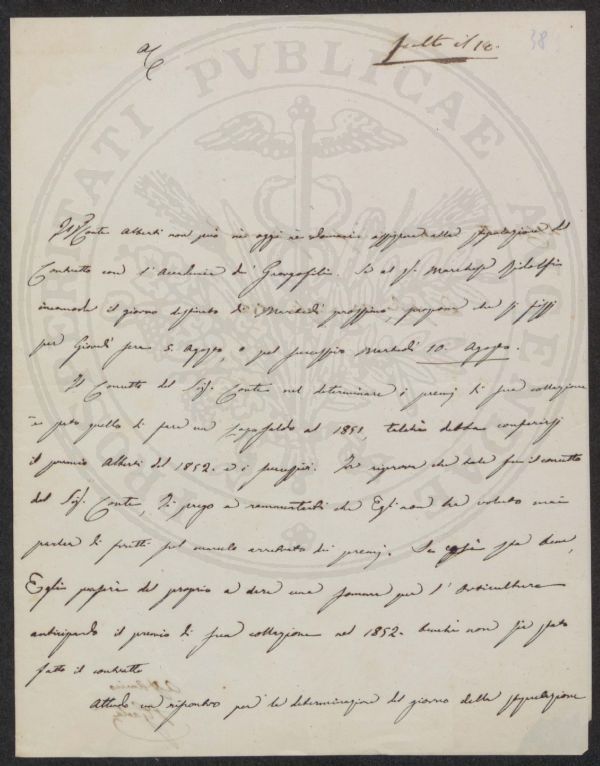 fatto il 12.
38
PROSPERITATI PVBLICAE AVGENDAE
Il Conte Alberti non può ne oggi ne domani assistere alla stipolazione del
Contratto con l'Accademia de' Georgofili. Se al Sr. Marchese Ridolfi
incomoda il giorno destinato di Martedì prossimo, propone che si fissi
per Giovedì sera 5. Agosto, o pel successivo Martedì 10. Agosto.
Il Concetto del Sig. Conte nel determinare i premj di sua collazione
è stato quello di fare un saldo al 1851, talchè debba conferirsi
il premio Alberti del 1852. e i successivi. In riprova che tale fu il concetto
del Sig. Conte, Ti prego a rammentarti che Egli non ha voluto mai
parlar di frutti sul cumulo arretrato dei premj. Se così sta bene,
Egli passerà del proprio a dare una somma per l'Orticultura
anticipando il premio di sua collazione nel 1852. benchè non sia stato
fatto il contratto
Attendo un riscontro per la determinazione del giorno della stipulazione